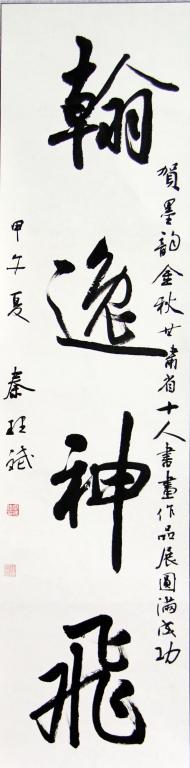 賀墨韵金秋甘肅省十人書畫作品展圓滿成功
翰逸神飛
甲午夏 秦